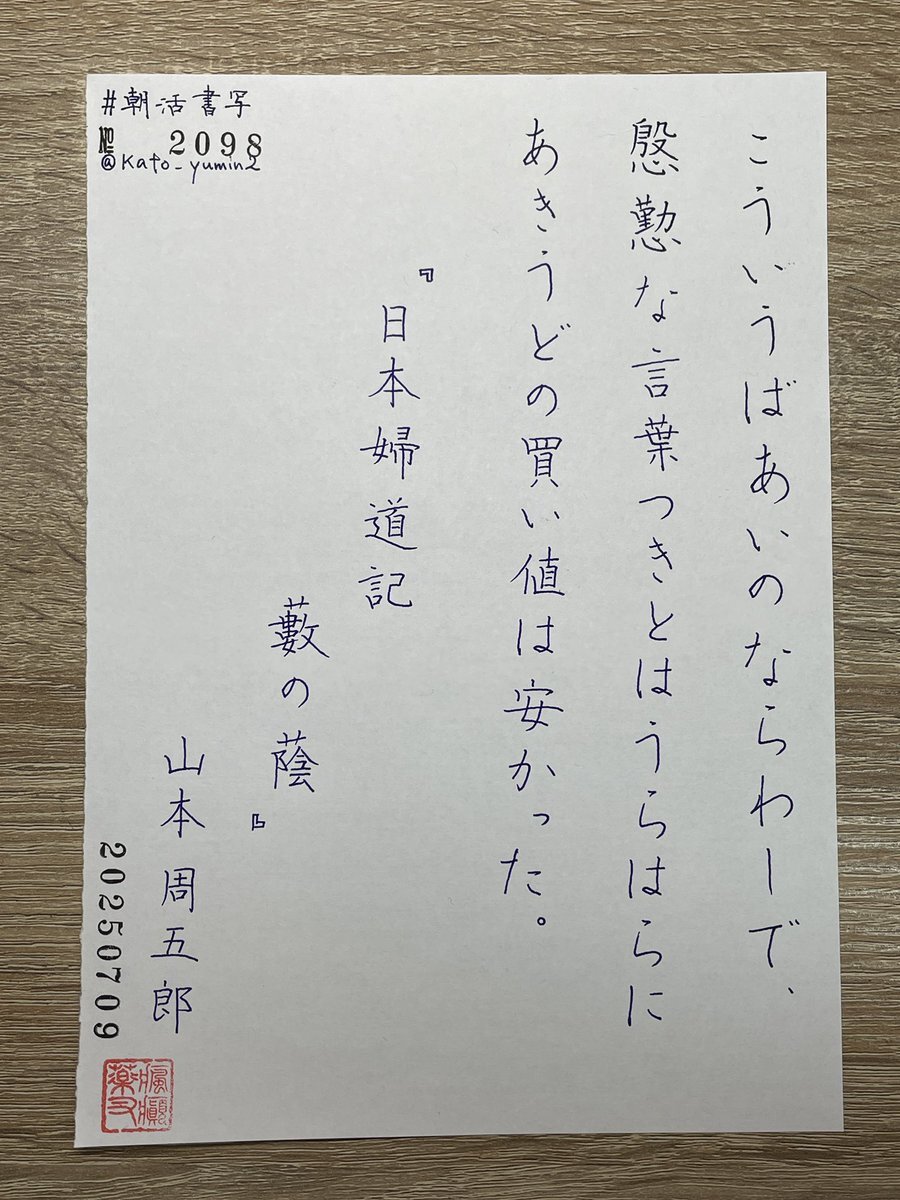 #朝活書写
№ 2098
@Kato_yumin2
こういうばあいのならわしで、
慇懃な言葉つきとはうらはらに
あきうどの買い値は安かった。
『日本婦道記
藪の蔭』
山本周五郎
20250709